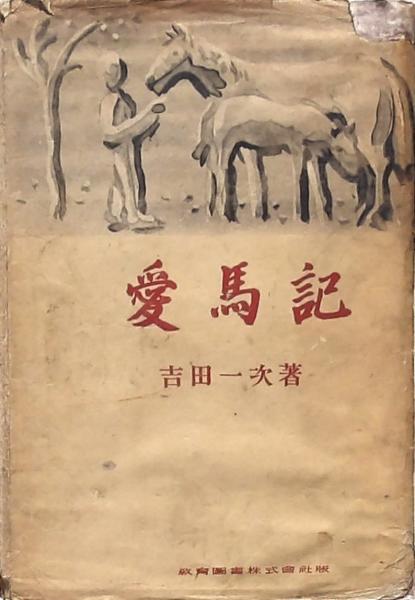 愛馬記
吉田一次著
教育圖書株式會社版